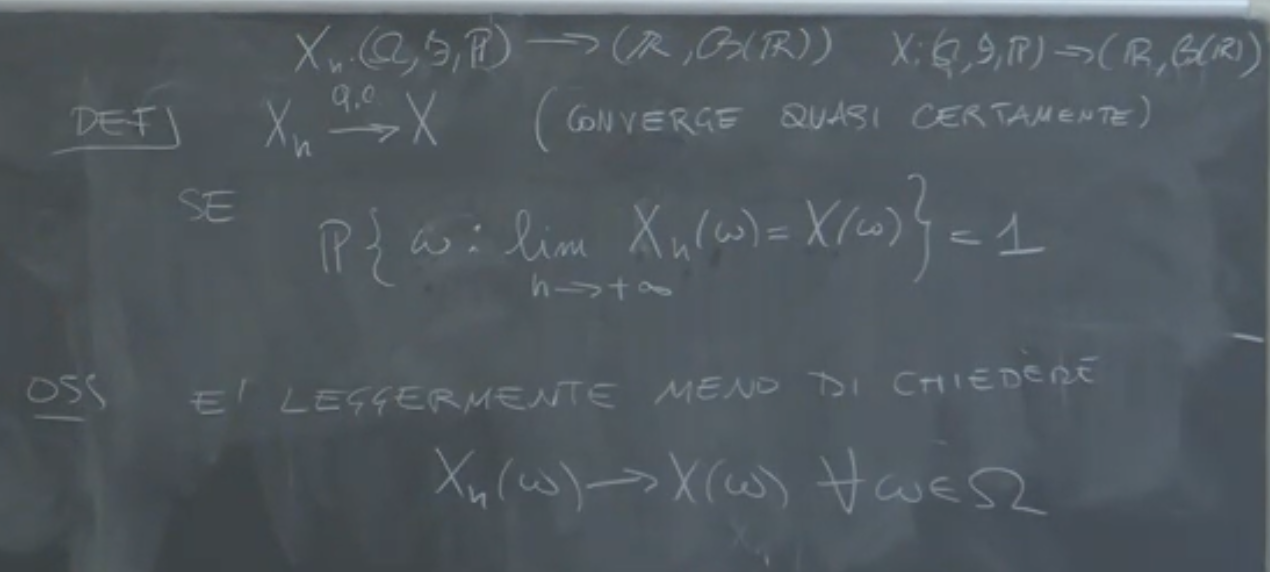 Xₙ: (Ω, 𝓕, ℙ) → (ℝ, 𝓑(ℝ)) X: (Ω, 𝓕, ℙ) → (ℝ, 𝓑(ℝ))
DEF) Xₙ →^{q.c} X (CONVERGE QUASI CERTAMENTE)
SE
ℙ{ω : lim_{n→+∞} Xₙ(ω) = X(ω)} = 1
OSS E' LEGGERMENTE MENO DI CHIEDERE
Xₙ(ω) → X(ω) ∀ω∈Ω